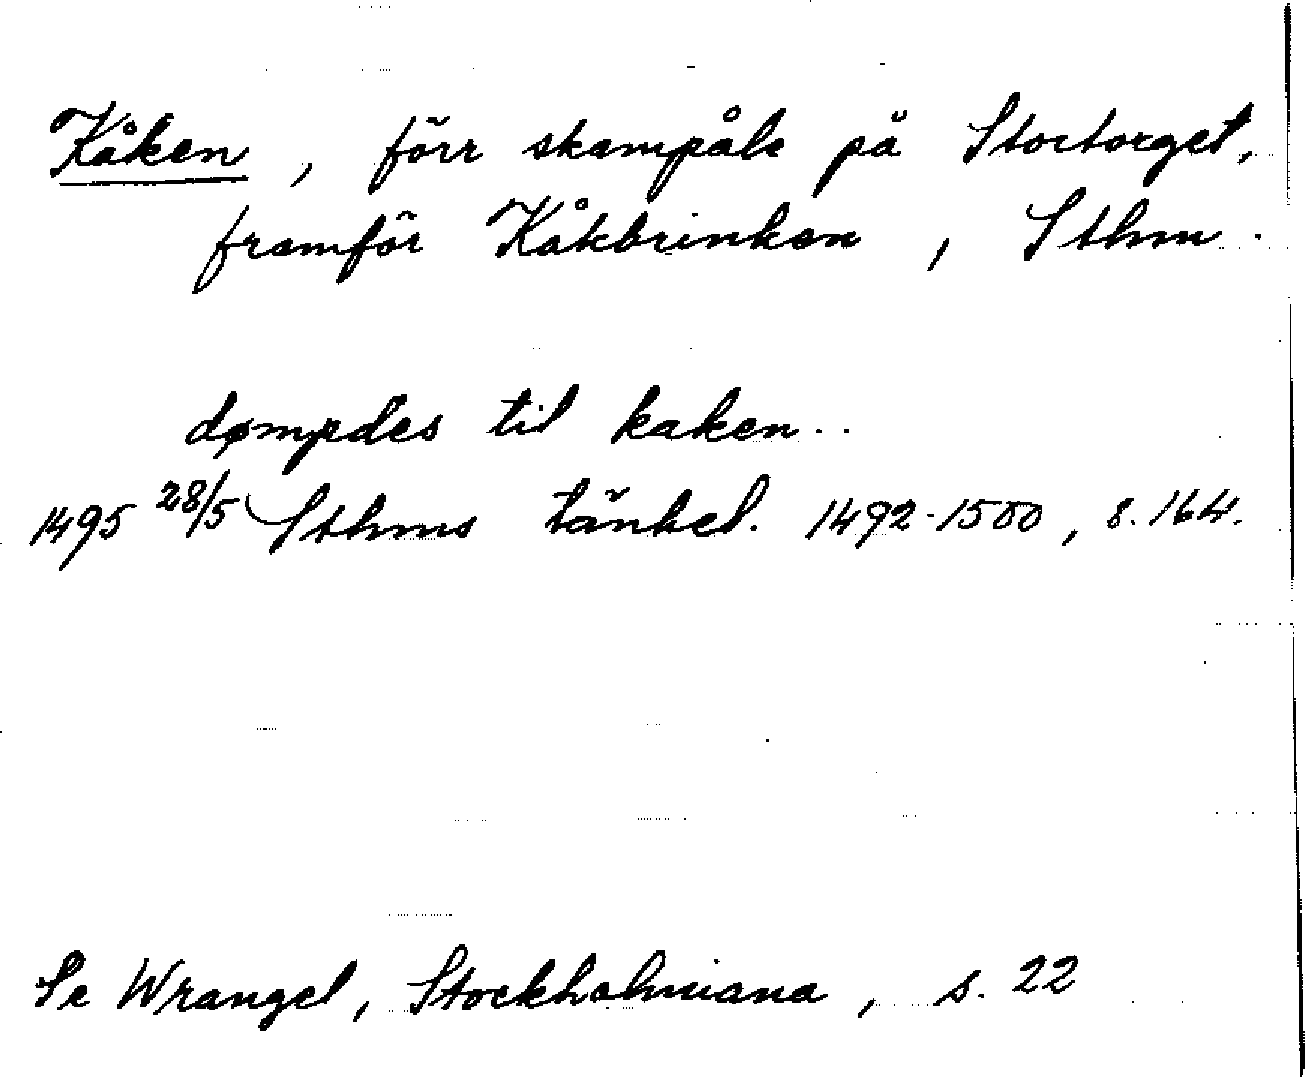 Kåken, förr skampåle på Stortorget,
framför Kåkbrinken, Sthm.
dømpdes til kaken..
1495 28/5 Sthms tänkeb. 1492-1500, s. 164.
Se Wrangel, Stockholmiana, s. 22